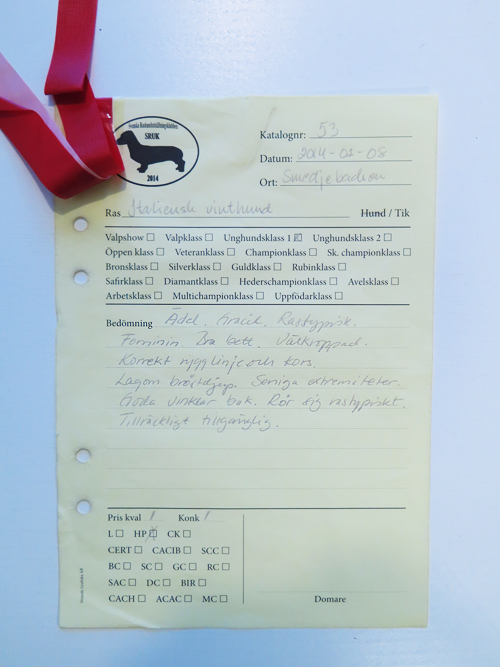 Svenska Rasbundsställningsklubben
SRUK
2014
Katalognr: 53
Datum: 2014-02-08
Ort: Smedjebacken
Ras Italiensk vinthund Hund / Tik
Valpshow ☐ Valpklass ☐ Unghundsklass 1 ☒ Unghundsklass 2 ☐
Öppen klass ☐ Veteranklass ☐ Championklass ☐ Sk. championklass ☐
Bronsklass ☐ Silverklass ☐ Guldklass ☐ Rubinklass ☐
Safirklass ☐ Diamantklass ☐ Hederschampionklass ☐ Avelsklass ☐
Arbetsklass ☐ Multichampionklass ☐ Uppfödarklass ☐
Bedömning Ädel. Gracil. Rastypisk.
Feminin. Bra bett. Välkroppad.
Korrekt rygglinje och kors.
Lagom bröstdjup. Seniga extremiteter.
Goda vinklar bak. Rör sig rastypiskt.
Tillräckligt tillgänglig.
Pris kval 1 Konk 1
L ☐ HP ☒ CK ☐
CERT ☐ CACIB ☐ SCC ☐
BC ☐ SC ☐ GC ☐ RC ☐
SAC ☐ DC ☐ BIR ☐
CACH ☐ ACAC ☐ MC ☐
Domare